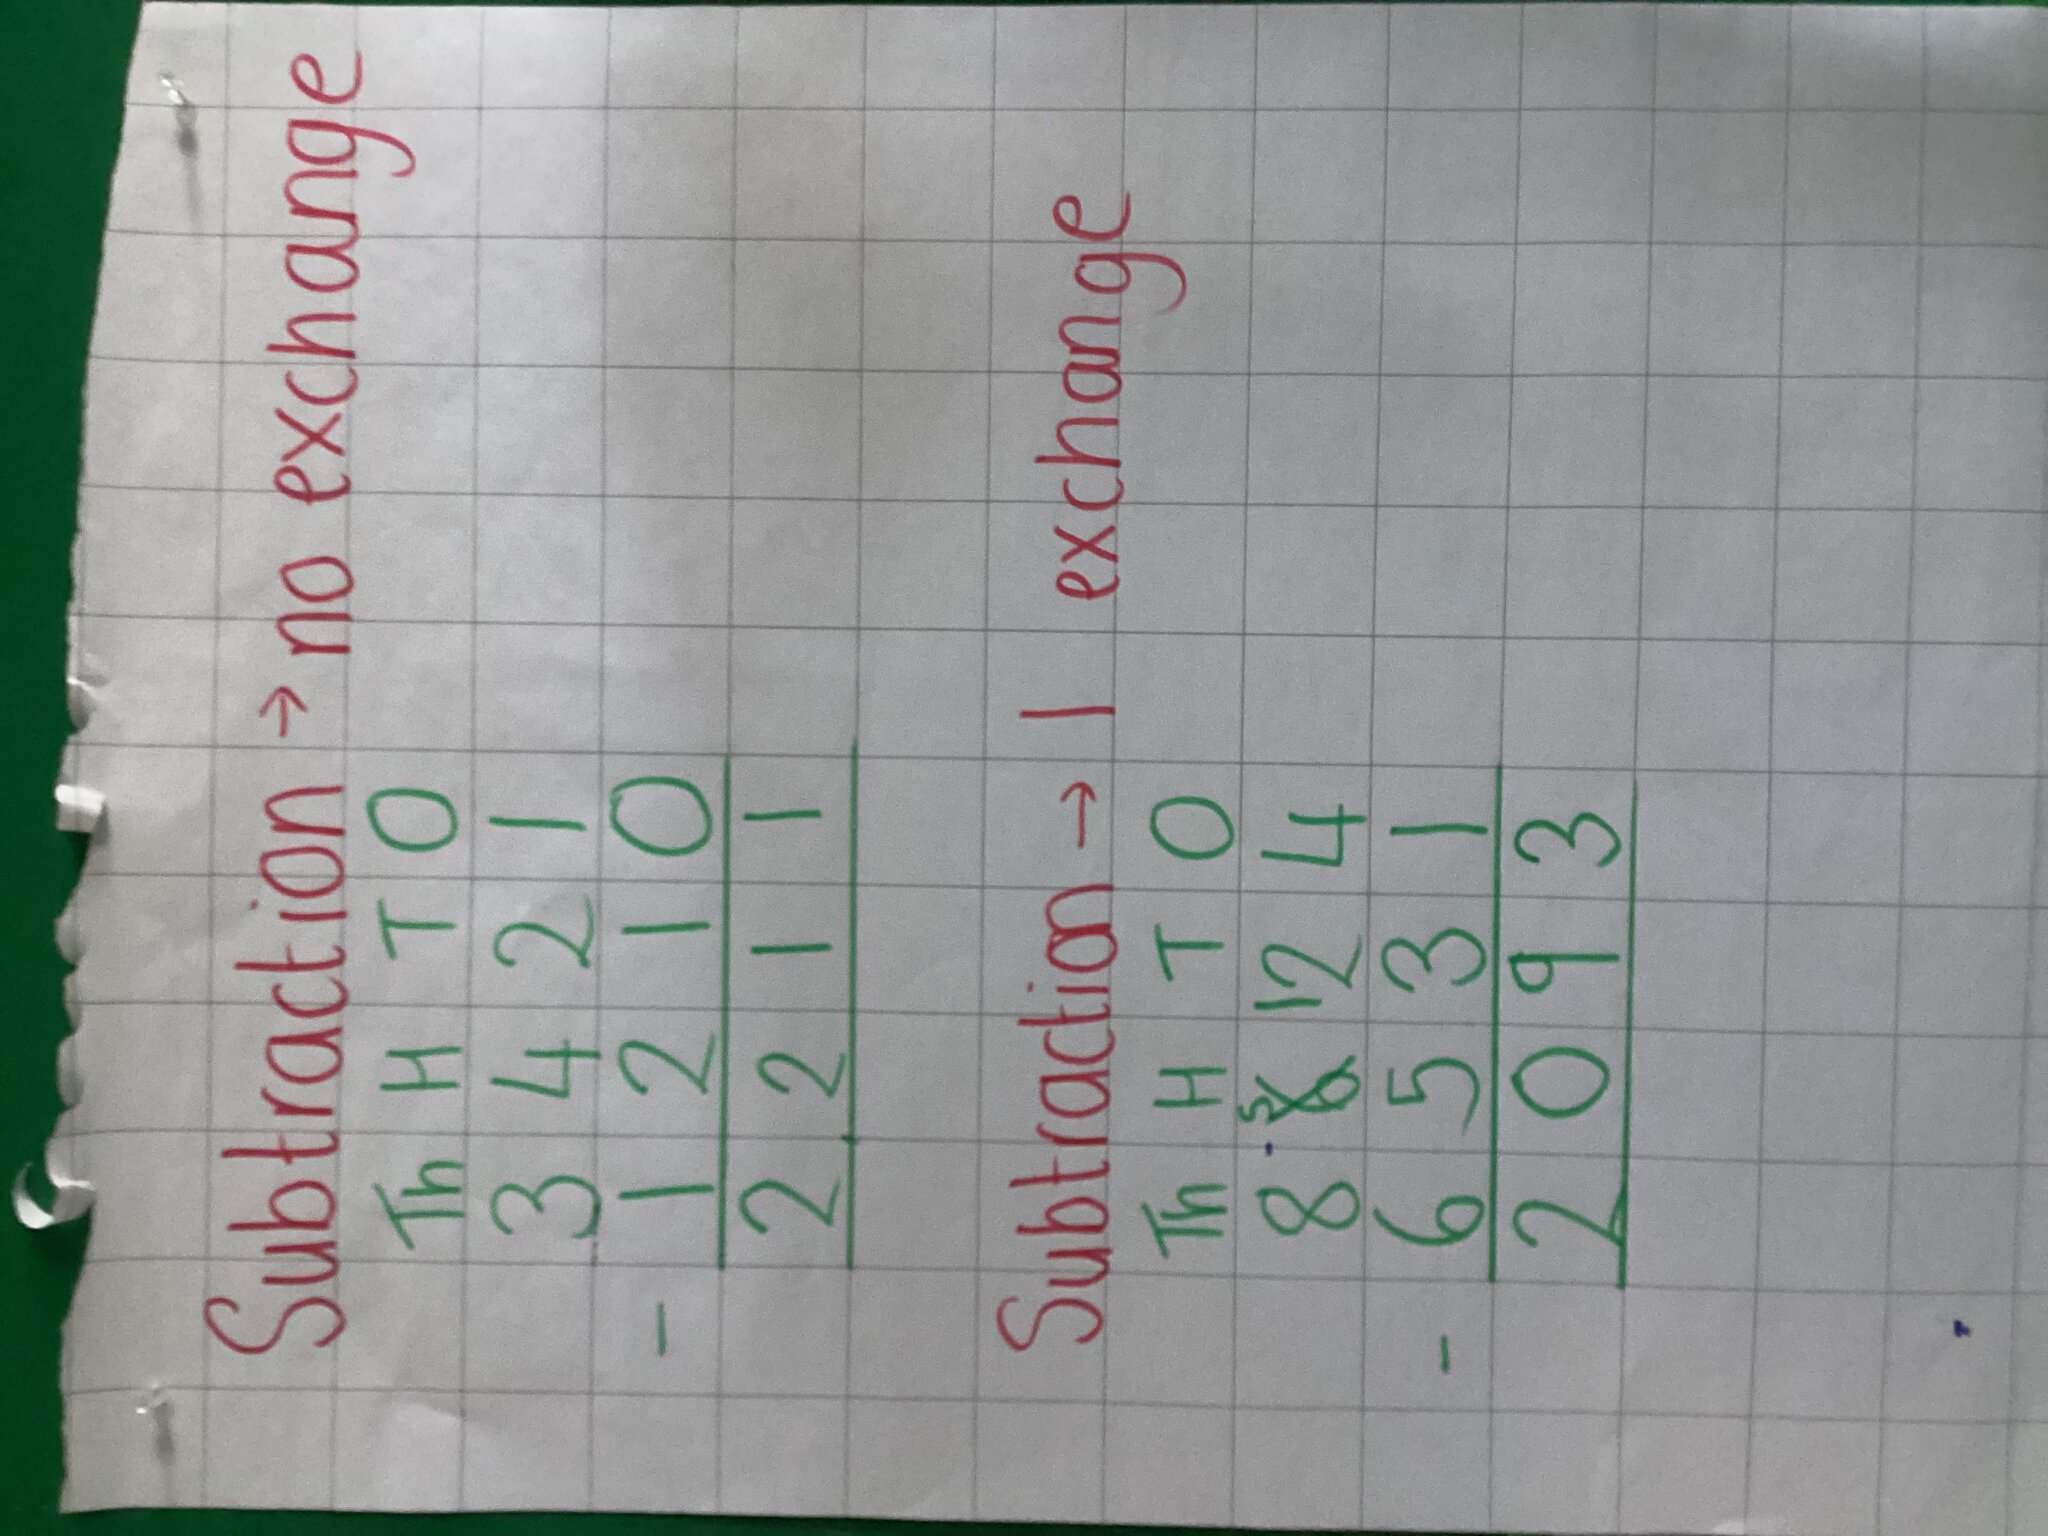 Subtraction → no exchange
Th H T O
3 4 2 1
- 1 2 1 0
2 2 1 1
Subtraction → 1 exchange
Th H T O
5
8 6 12 4
- 6 5 3 1
2 0 9 3